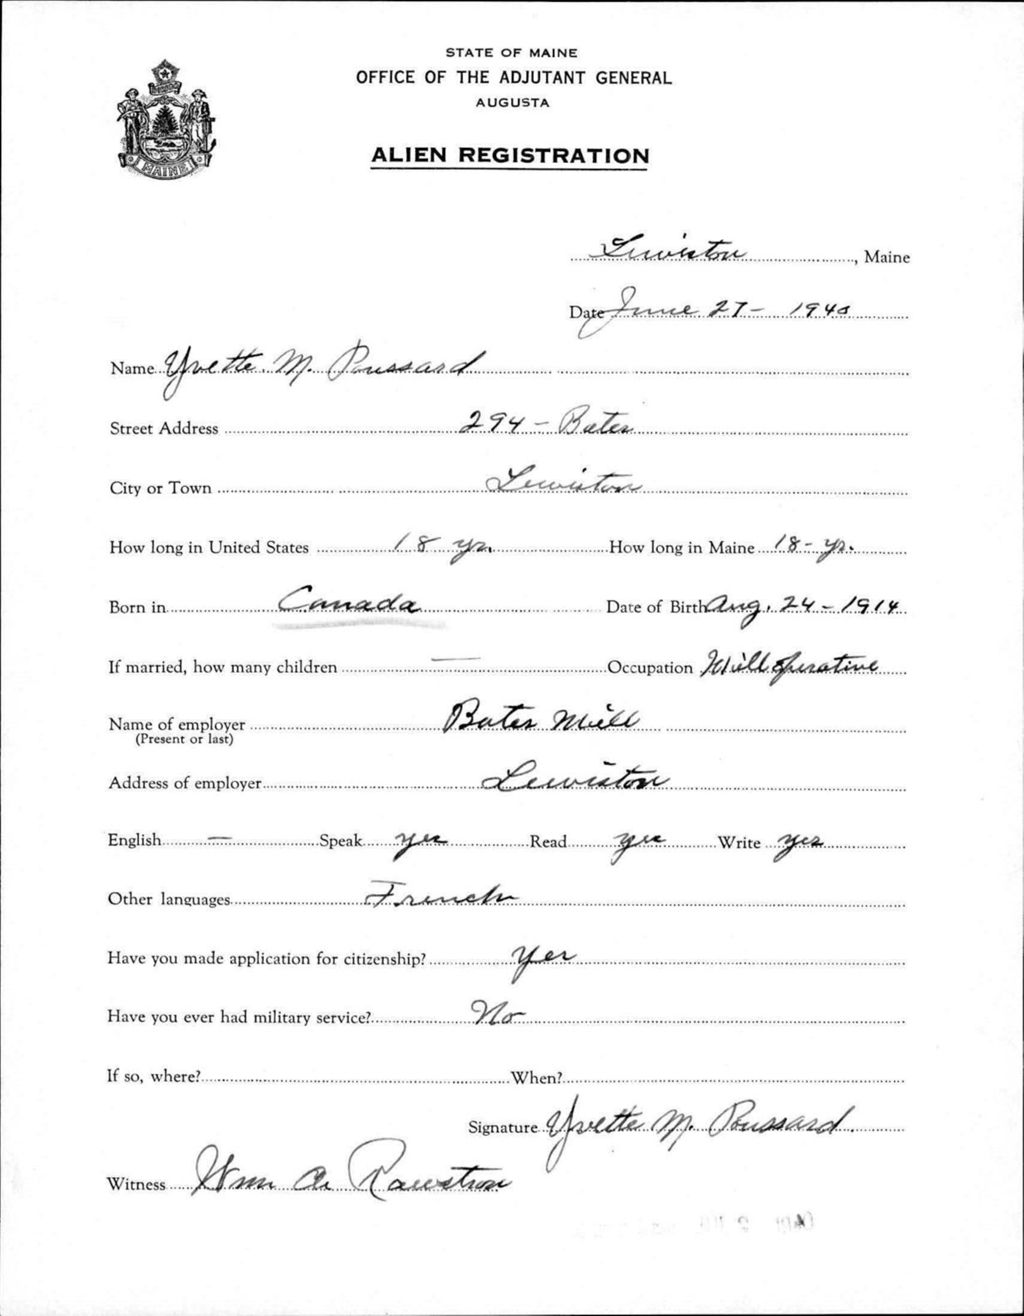 STATE OF MAINE
OFFICE OF THE ADJUTANT GENERAL
AUGUSTA
ALIEN REGISTRATION
MAINE
Lewiston, Maine
Date June 27 - 1940
Name Yvette M. Poussard
Street Address 294 - Bates
City or Town Lewiston
How long in United States 18 yrs. How long in Maine 18 - yrs.
Born in Canada Date of Birth Aug. 24 - 1914
If married, how many children — Occupation Mill operative
Name of employer Bates Mill
(Present or last)
Address of employer Lewiston
English — Speak yes Read yes Write yes
Other languages French
Have you made application for citizenship? Yes
Have you ever had military service? No
If so, where? When?
Signature Yvette M. Poussard
Witness Wm A. Rawstron